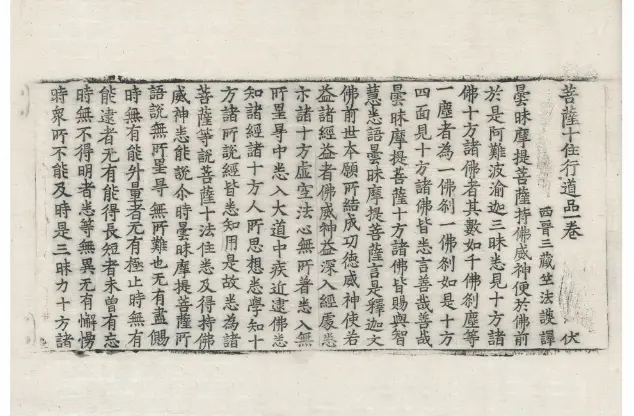 菩薩十住行道品一卷
西晋三藏竺法護譯 伏
曇昧摩提菩薩持佛威神便於佛前
於是阿難波渝迦三昧悉見十方諸
佛十方諸佛者其數如千佛刹塵等
一塵者為一佛刹一佛刹如是十方
四面見十方諸佛皆悉言善哉善哉
曇昧摩提菩薩十方諸佛皆賜與智
慧悉語曇昧摩提菩薩言是釋迦文
佛前世本願所結成功德威神使若
益諸經益者佛威神益深入經處悉
示諸十方虛空法心無所著悉入無
所罣导中悉入大道中疾近逮佛悉
知諸經諸十方人所思想悉學知十
方諸所說經皆悉知用是故悉為諸
菩薩等說菩薩十法住悉及得持佛
威神悉能說尒時曇昧摩提菩薩所
語說無所罣导無所難也无有盡賜
時無有能外量者无有極止時無有
能逮者无有能得長短者未曾有忘
時無不得明者悉等無異无有懈
時衆所不能及時是三昧力十方諸